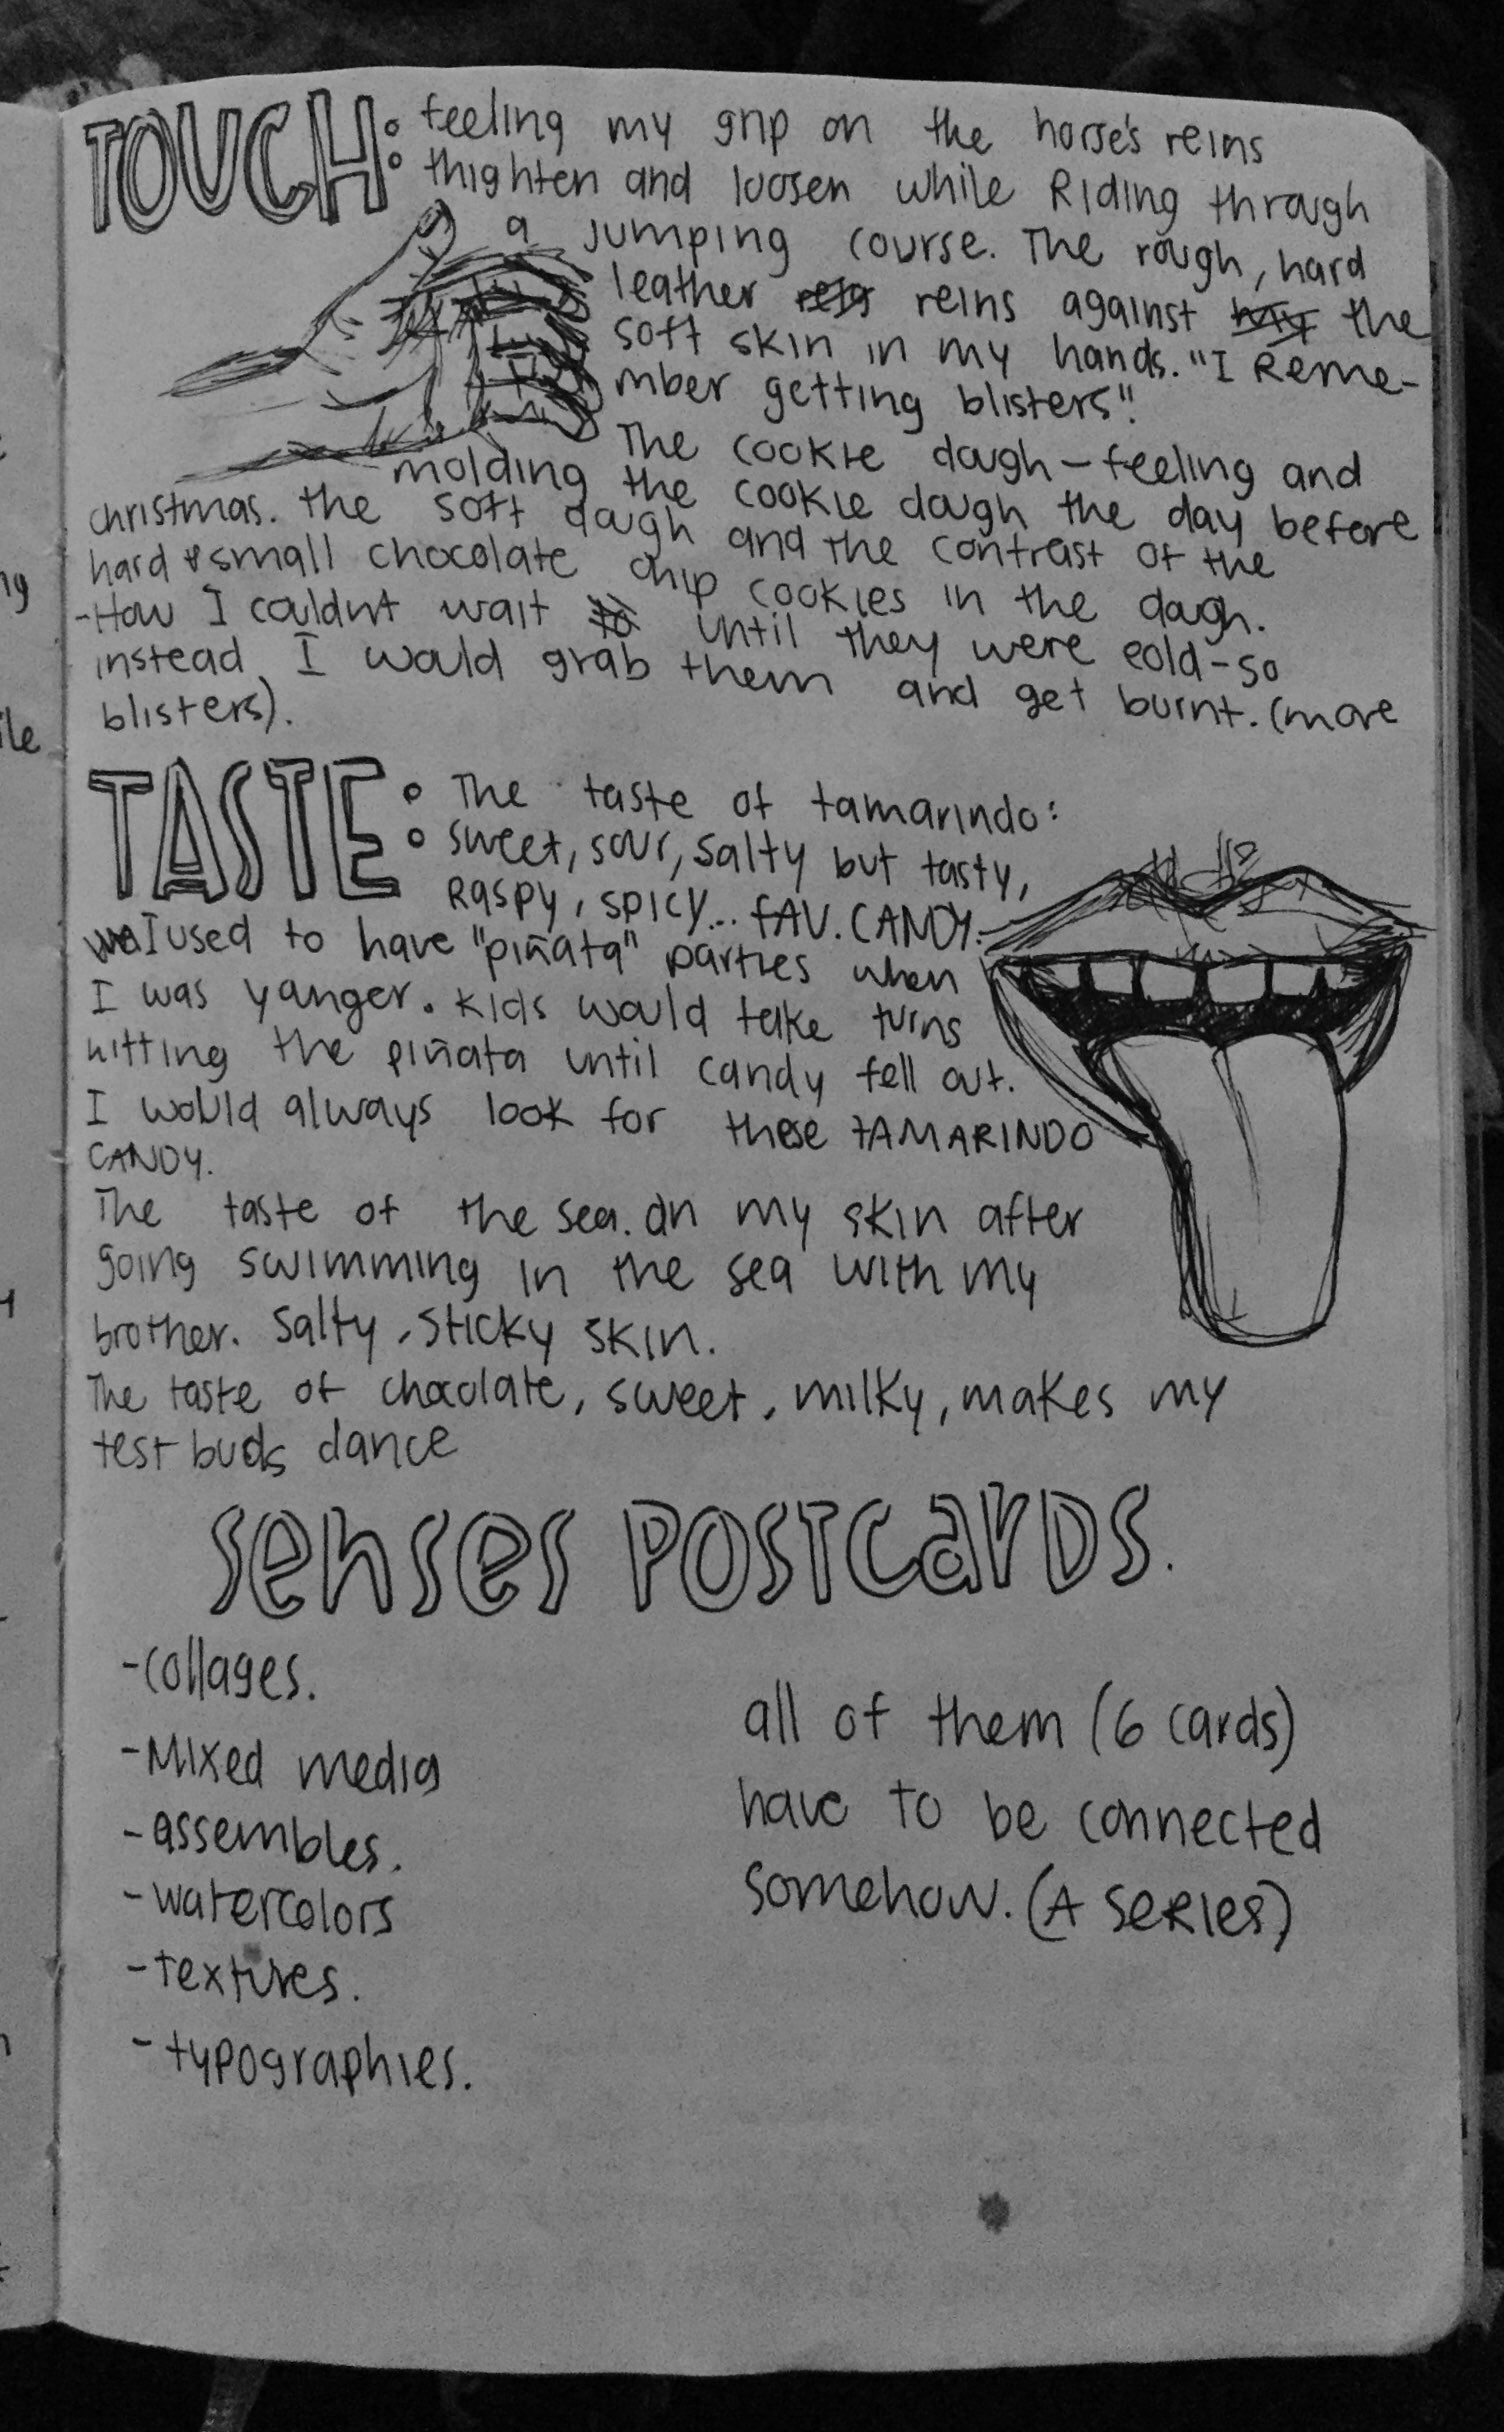 TOUCH: feeling my grip on the horse's reins
thighten and loosen while Riding through
a jumping course. The rough, hard
leather reins against the
soft skin in my hands. "I Reme-
mber getting blisters"!
The cookie dough - feeling and
molding the cookie dough the day before
christmas. the soft dough and the contrast of the
hard & small chocolate chip cookies in the dough.
- How I couldnt wait to until they were cold - so
instead I would grab them and get burnt. (more
blisters).
TASTE: The taste of tamarindo:
sweet, sour, salty but tasty,
Raspy, spicy... fAV. CANDY.
I used to have "piñata" parties when
I was yanger. Kids would take turns
hitting the piñata until candy fell out.
I would always look for these tAMARINDO
CANDY.
The taste of the sea. on my skin after
going swimming in the sea with my
brother. Salty, sticky skin.
The taste of chocolate, sweet, milky, makes my
test buds dance
senses POSTcarDS.
- collages.
- Mixed media
- assembles.
- watercolors
- textures.
- typographies.
all of them (6 cards)
have to be connected
somehow. (A SERIES)